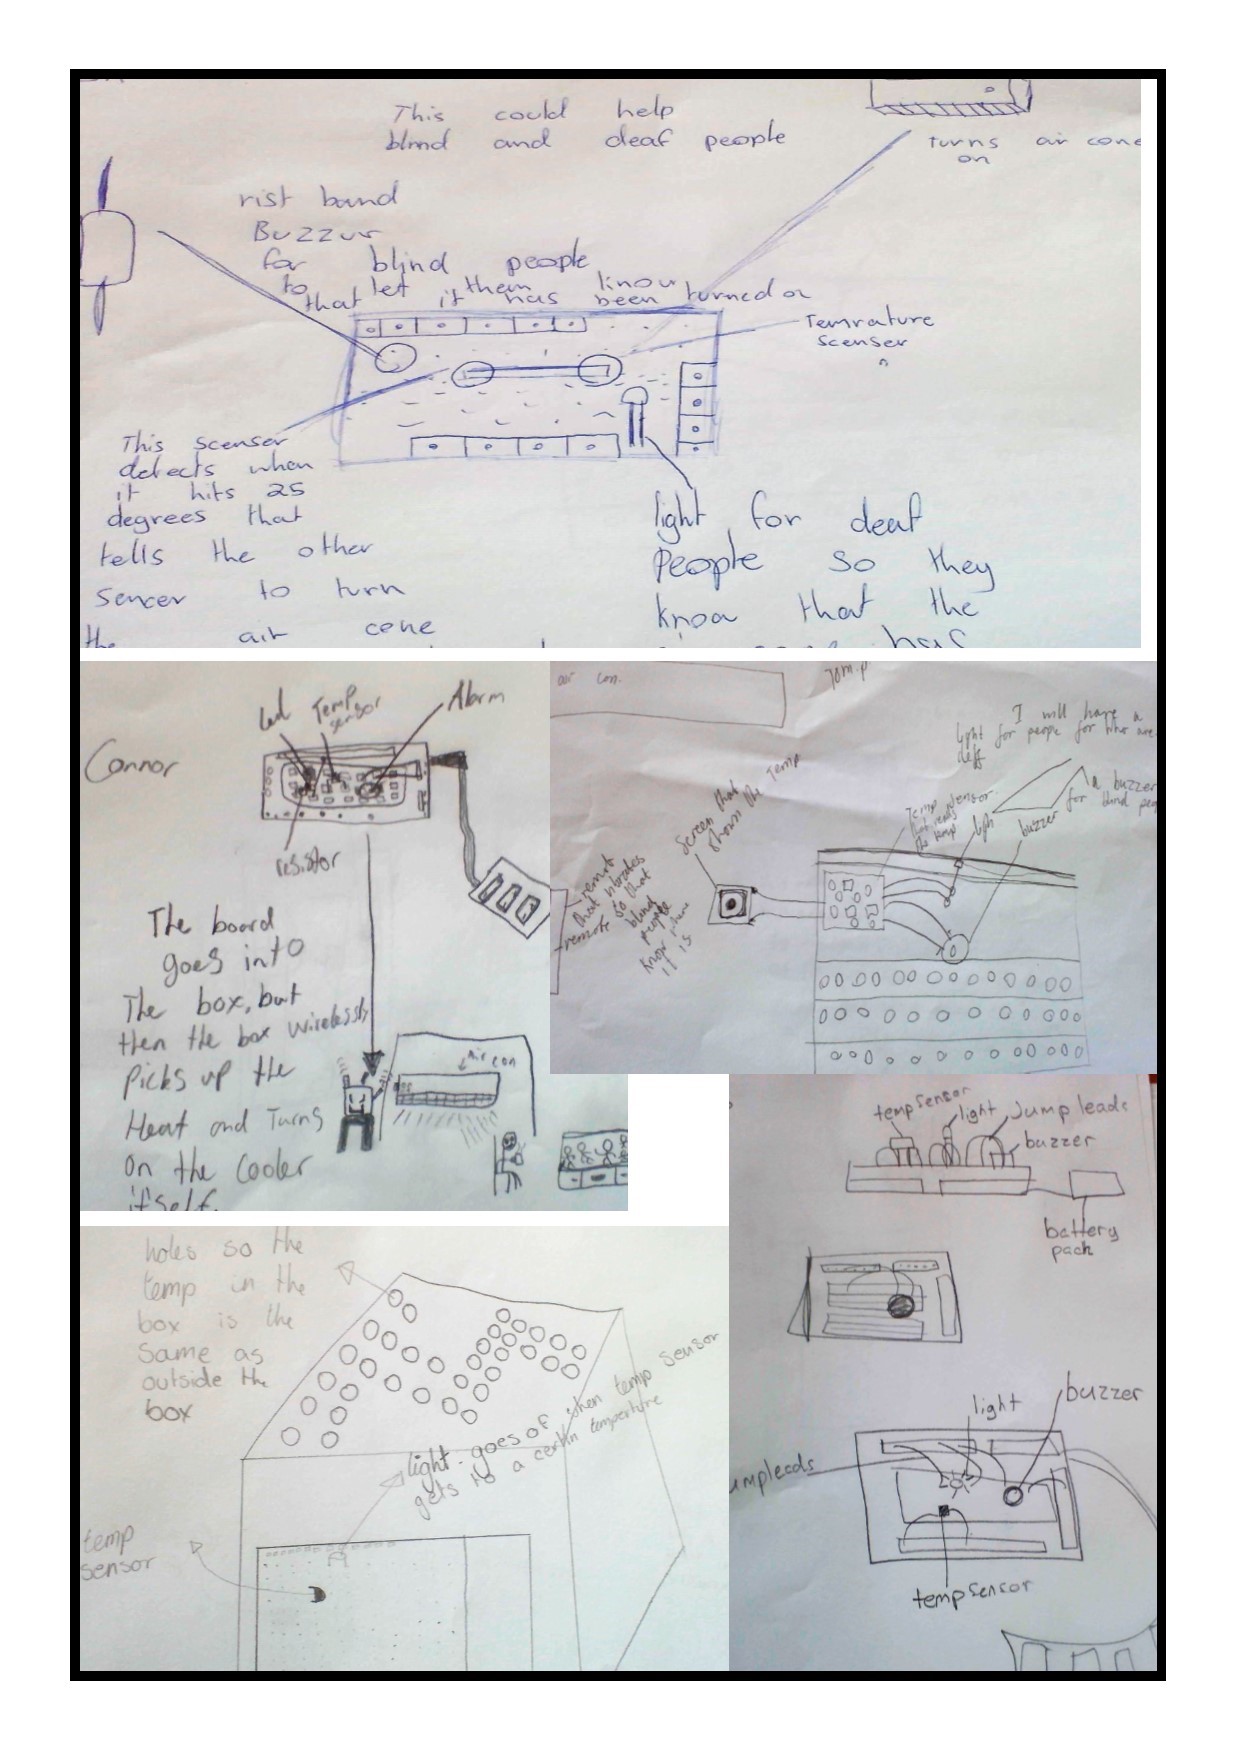 This could help
blind and deaf people
turns air cone
on
rist band
Buzzur
for blind people
to let them know
that it has been turned o
Temrature
scenser
This scenser
detects when
it hits 25
degrees that
tells the other
sencer to turn
the air cone
light for deaf
People so they
knoa that the
has
Led
Temp
sensor
Alarm
Connor
resistor
The board
goes into
The box, but
then the box wirelessly
picks up the
Heat and Turns
on the cooler
itself.
Air con
air con.
Tom.p.
I will have a
light for people for who are
deff
a buzzer
for blind peo
Temp sensor
that reads
the temp
buzzer
Screen that
shows the Temp
remot
that vibrates
so that
blind
people
know where
it is
remote
temp sensor
light
Jump leads
buzzer
battery
pack
light
buzzer
umpleads
temp sensor
holes so the
temp in the
box is the
same as
outside the
box
light goes of when temp sensor
gets to a certin temperture
temp
sensor